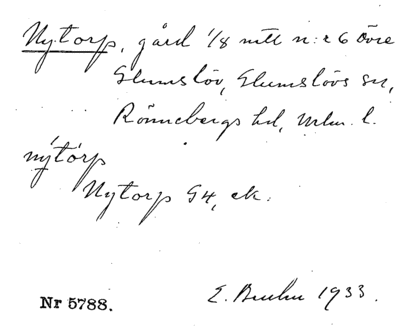 Nytorp, gård 1/8 mtl n:r 6 Övre
Glumslöv, Glumslövs sn,
Rönnebergs hd, Mlm. l.
nýtòrp
Nytorp G4, ek.
E. Bruhn 1933.
Nr 5788.